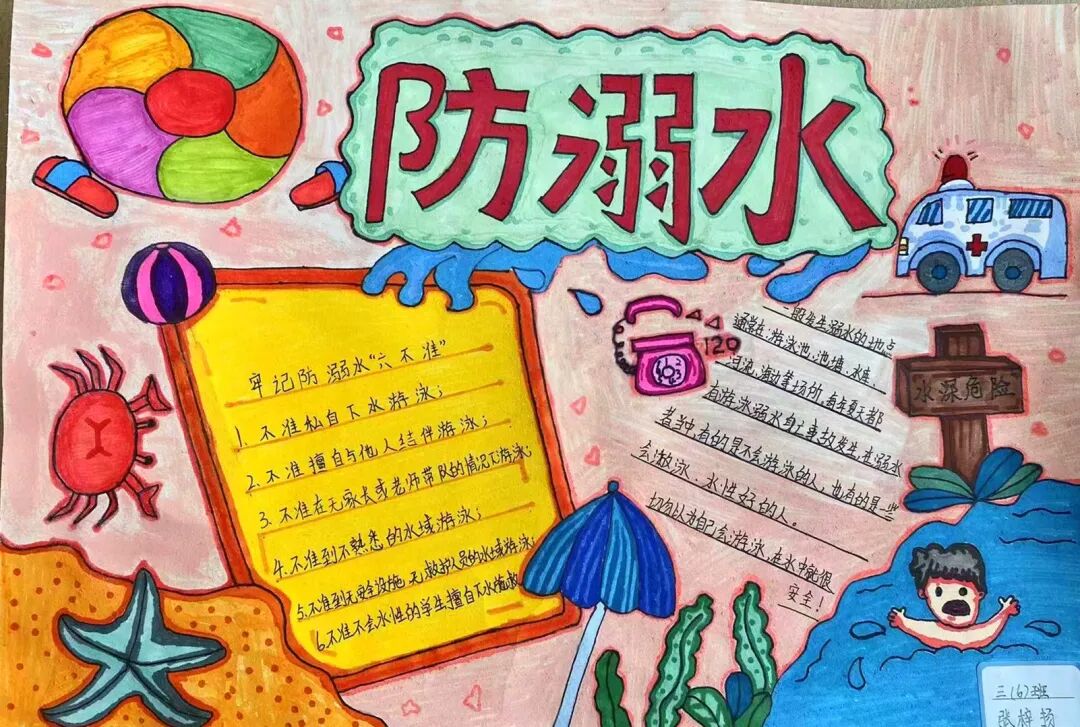 防溺水
牢记防溺水“六不准”
1. 不准私自下水游泳；
2. 不准擅自与他人结伴游泳；
3. 不准在无家长或老师带队的情况下游泳；
4. 不准到不熟悉的水域游泳；
5. 不准到无安全设施、无救护人员的水域游泳；
6. 不准不会水性的学生擅自下水施救
120
一般发生溺水的地点
通常在：游泳池、池塘、水库、
河流、海边等场所，每年夏天都
有游泳溺水身亡事故发生，在溺水
者当中，有的是不会游泳的人，也有的是一些
会游泳、水性好的人。
切勿认为自己会游泳，在水中就很
安全！
水深危险
三（6）班
张梓扬